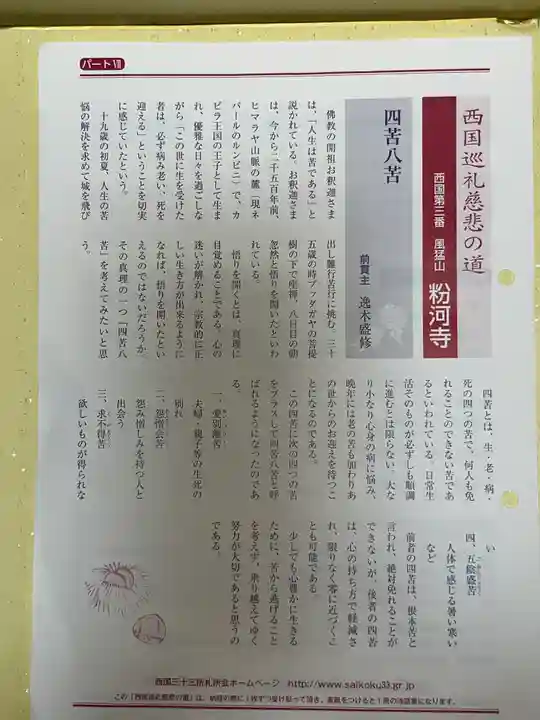 パートⅦ
西国巡礼慈悲の道
西国第三番 風猛山 粉河寺
四苦八苦
前貫主 逸木盛修
佛教の開祖お釈迦さま
は、「人生は苦である」と
説かれている。お釈迦さま
は、今から二千五百年前、
ヒマラヤ山脈の麓（現ネ
パールのルンビニ）で、カ
ピラ王国の王子として生ま
れ、優雅な日々を過ごしな
がら「この世に生を受けた
者は、必ず病み老い、死を
迎える」ということを切実
に感じていたという。
十九歳の初夏、人生の苦
悩の解決を求めて城を飛び
出し難行苦行に挑む。三十
五歳の時ブッダガヤの菩提
樹の下で座禅、八日目の朝
忽然と悟りを開いたといわ
れている。
悟りを開くとは、真理に
目覚めることである。心の
迷いが解かれ、宗教的に正
しい生き方が出来るように
なれば、悟りを開いたとい
えるのではないだろうか。
その真理の一つ「四苦八
苦」を考えてみたいと思
う。
四苦とは、生・老・病・
死の四つの苦で、何人も免
れることのできない苦であ
るといわれている。日常生
活そのものが必ずしも順調
に進むとは限らない。大な
り小なり心身の病に悩み、
晩年には老の苦も加わりあ
の世からのお迎えを待つこ
とになるのである。
この四苦に次の四つの苦
をプラスして四苦八苦と呼
ばれるようになったのであ
る。
一、愛別離苦
夫婦・親子等の生死の
別れ
二、怨憎会苦
怨み憎しみを持つ人と
出会う
三、求不得苦
欲しいものが得られな
い
四、五蘊盛苦
人体で感じる暑い寒い
など
前者の四苦は、根本苦と
言われ、絶対免れることが
できないが、後者の四苦
は、心の持ち方で軽減さ
れ、限りなく零に近づくこ
とも可能である。
少しでも心豊かに生きる
ために、苦から逃げること
を考えず、乗り越えてゆく
努力が大切であると思うの
である。
西国三十三所札所会ホームページ http://www.saikoku33.gr.jp
この「西国巡礼慈悲の道」は、納経の際に1枚ずつ受け取って頂き、表紙をつけると1冊の法話集になります。